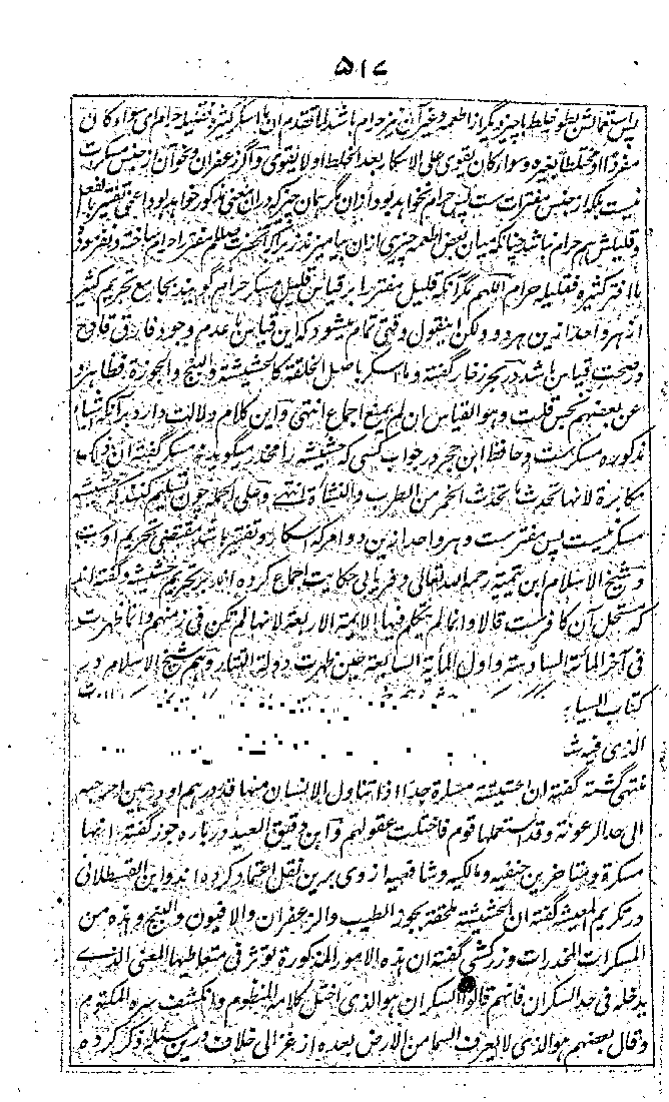 ۵۱۷
پس استعمالش بطور خلط با چیز دیگر از اطعمه و غیر آن نیز حرام باشد لما تقدم ان ما اسکر کثیره فقلیله حرام ای سواء کان
مفردا او مختلطا بغیره و سواء کان یقوی علی الاسکار بعد الخلط او لا یقوی و اگر زعفران و نحو آن از جنس مسکرات
نیست بلکه از جنس مفترات ست پس حرام نخواهد بود و از آن گر همان چیز که در آن معنی مذکور خواهد بود اعنی تفتیر بالفعل
و قلیلش هم حرام نباشد چنانکه میان بعض اطعمه چیزی از آن بیامیزند زیرا که آنحضرت صللم مفتر را حرام ساخته و نفرموده
ما افتر کثیره فقلیله حرام اللهم مگر آنکه قلیل مفتر را بر قیاس قلیل مسکر حرام گویند بجامع تحریم کثیر
از هر واحد ازین هر دو ولکن اینقول وقتی تمام میشود که این قیاس با عدم وجود فارق قادح
در صحت قیاس باشد در بحر زخار گفته و ما اسکر باصل الخلقة کالحشیشة والبنج والجوزة فطاهر و
عن بعضهم نجس قلت وهو القیاس ان لم یمنع اجماع انتهی و این کلام دلالت دارد بر آنکه اشیاء
مذکوره مسکر ست و حافظ ابن حجر در جواب کسی که حشیشه را مخدر میگوید نه مسکر گفته ان ذلک
مکابرة لانها تحدث ما تحدث الخمر من الطرب والنشأة انتهی و علی الجمله چون تسلیم کنند که حشیشه
مسکر نیست پس مفتر ست و هر واحد ازین دو امر که اسکار و تفتیر باشد مقتضی تحریم اوست
و شیخ الاسلام ابن تیمیة رحمه الله تعالی و قرافی حکایت اجماع کرده اند بر تحریم حشیشه و گفته اند
که مستحل آن کافر ست قالا وانما لم یتکلم فیها الایمة الاربعة لانها لم تکن فی زمنهم وانما ظهرت
فی آخر المائة السادسة واول المأیة السابعة حین ظهرت دولة التتار و هم شیخ الاسلام در
کتاب السیا
الذی فیه
منتهی گشته گفته ان الحشیشة مسکرة جدا اذا تناول الانسان منها قدر درهم او درهمین اخرجته
الی حد الرعونة وقد استعملها قوم فاختلت عقولهم و ابن دقیق العید درباره جوز گفته انها
مسکرة و متأخرین حنفیه و مالکیه و شافعیه از وی برین نقل اعتماد کرده اند و ابن القسطلانی
در تکریم المعیشه گفته ان الحشیشة ملحقة بجوز الطیب والزعفران والافیون والبنج وهذه من
المسکرات المخدرات و زرکشی گفته ان هذه الامور المذکورة تؤثر فی متعاطیها المعنی الذی
یدخله فی حد السکران فانهم قالوا السکران هو الذی اختل کلامه المنظوم وانکشف سره المکتوم
وقال بعضهم هو الذی لا یعرف السما من الارض بعده از غزالی خلاف درین مسئله ذکر کرده